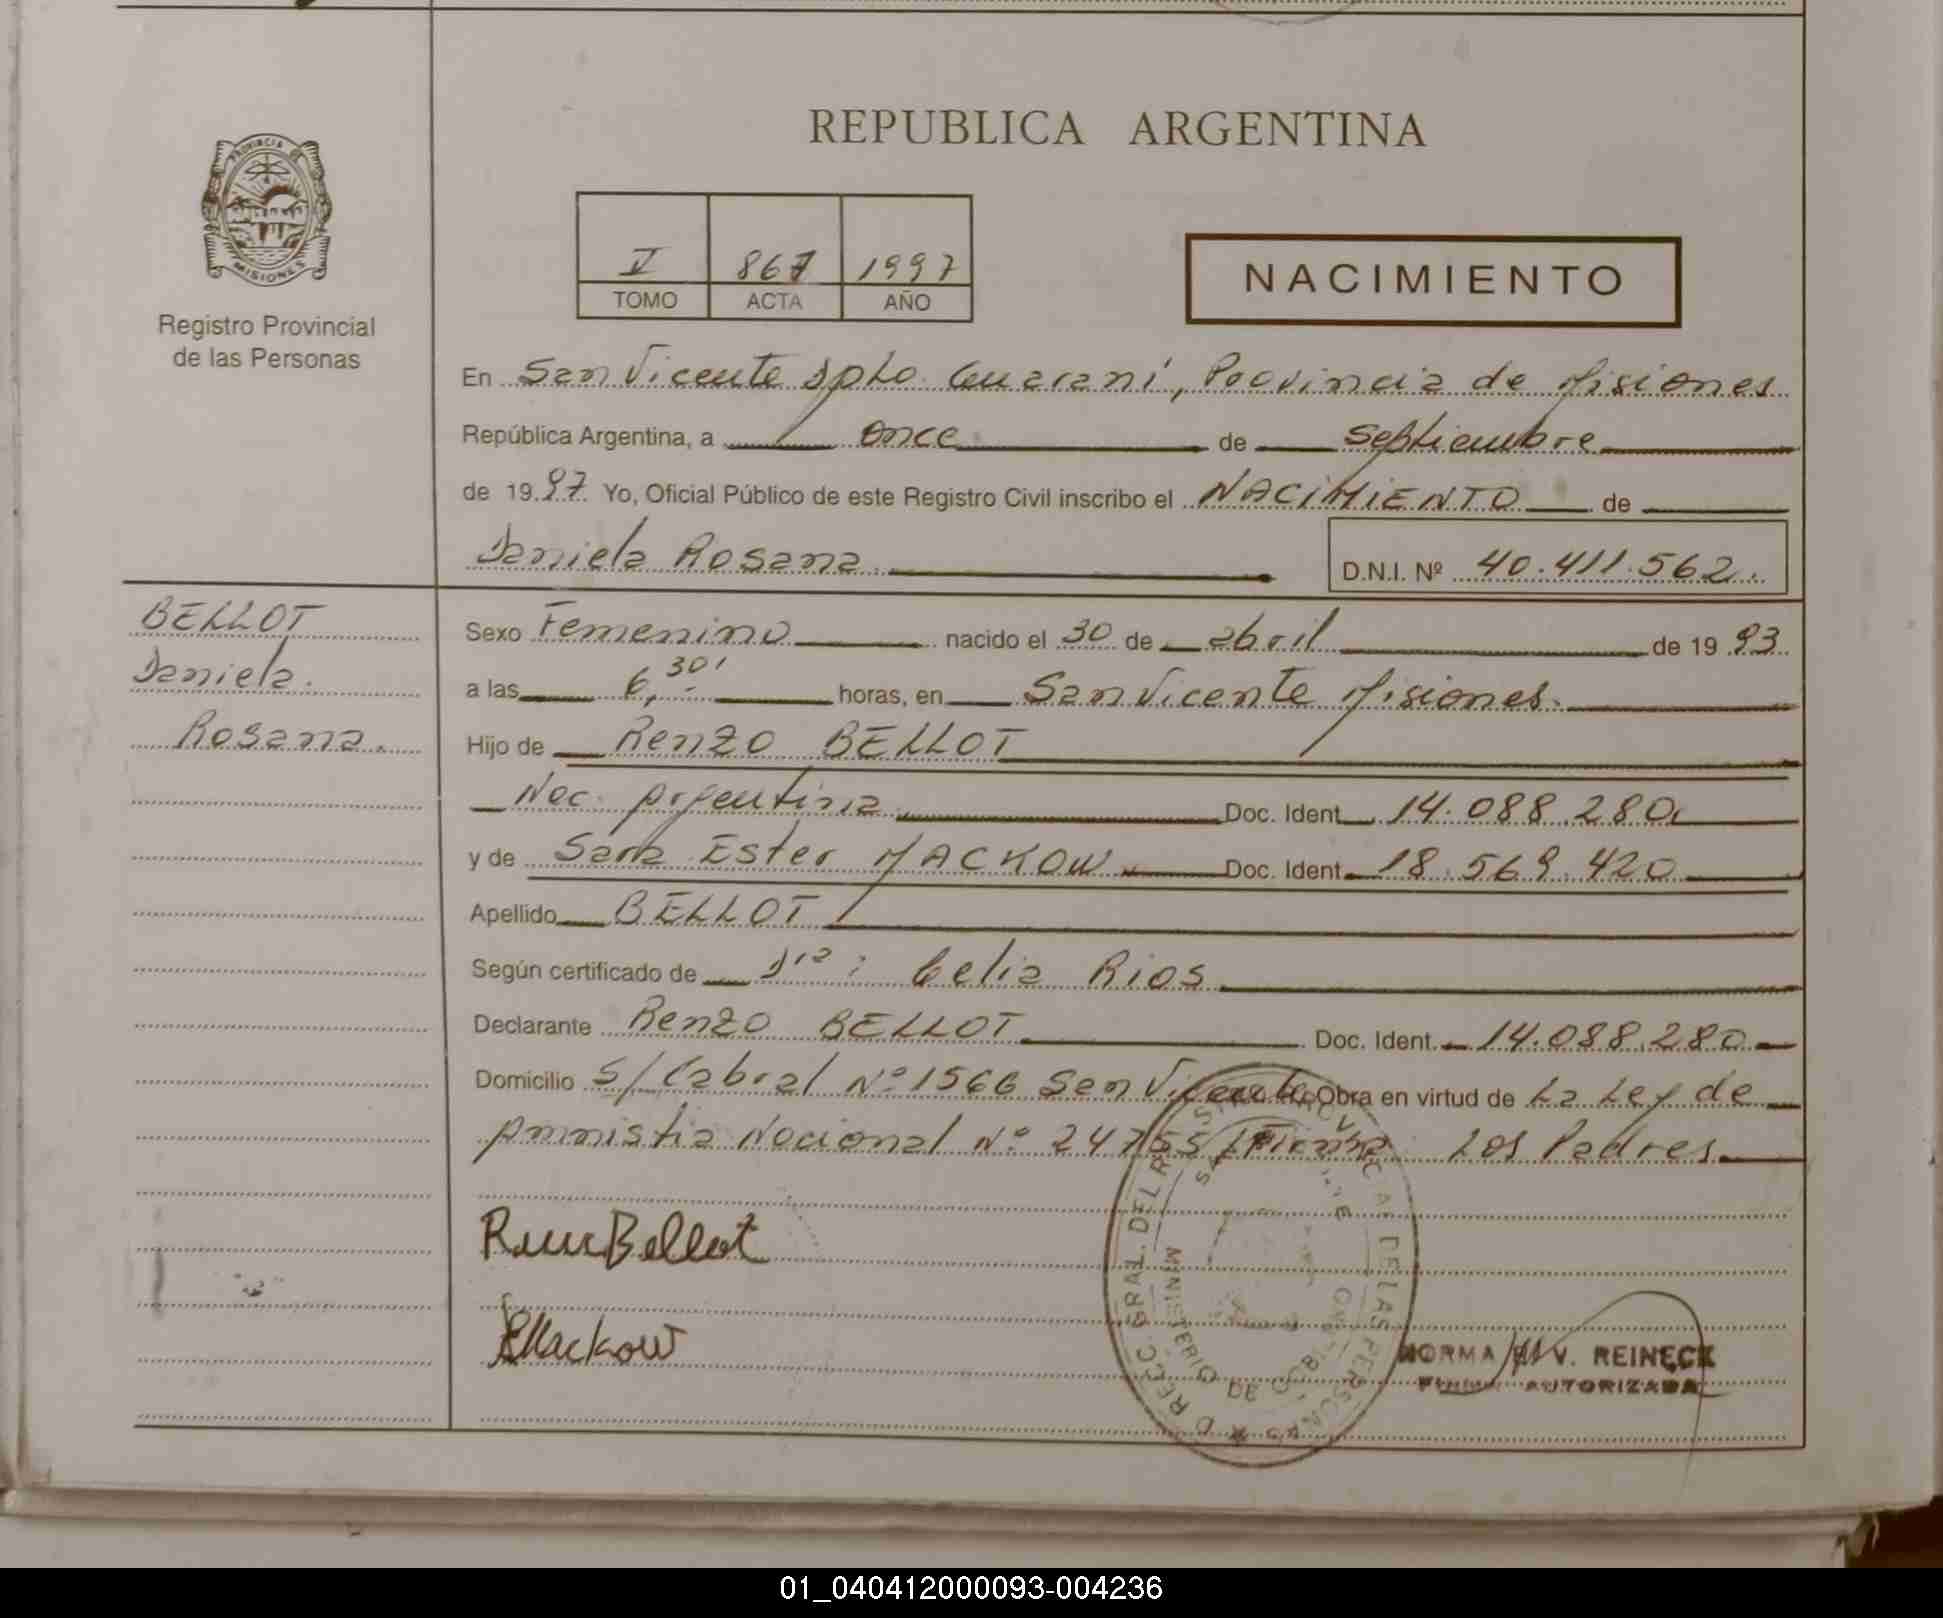 REPUBLICA ARGENTINA
PROVINCIA DE
MISIONES
Registro Provincial
de las Personas
V 867 1997
TOMO ACTA AÑO
NACIMIENTO
En San Vicente Dpto. Guaraní, Provincia de Misiones
República Argentina, a once de Septiembre
de 1997 Yo, Oficial Público de este Registro Civil inscribo el NACIMIENTO de
Daniela Rosana
D.N.I. Nº 40.411.562.
BELLOT
Daniela.
Rosana.
Sexo Femenino nacido el 30 de abril de 1993
a las 6,30' horas, en San Vicente Misiones.
Hijo de Renzo BELLOT
Nac. Argentina Doc. Ident. 14.088.280
y de Sara Ester MACKOW Doc. Ident. 18.569.420
Apellido BELLOT
Según certificado de Dra: Celia Rios
Declarante Renzo BELLOT Doc. Ident. 14.088.280
Domicilio S/Cabral Nº 1566 San Vicente Obra en virtud de La Ley de
Amnistia Nacional Nº 24755 Firma: Los Padres
Bellot
Mackow
DIRECC. GRAL. DEL REGISTRO PROVINCIAL DE LAS PERSONAS
MINISTERIO DE GOBIERNO
NORMA V. REINECK
FIRMA AUTORIZADA
01_040412000093-004236